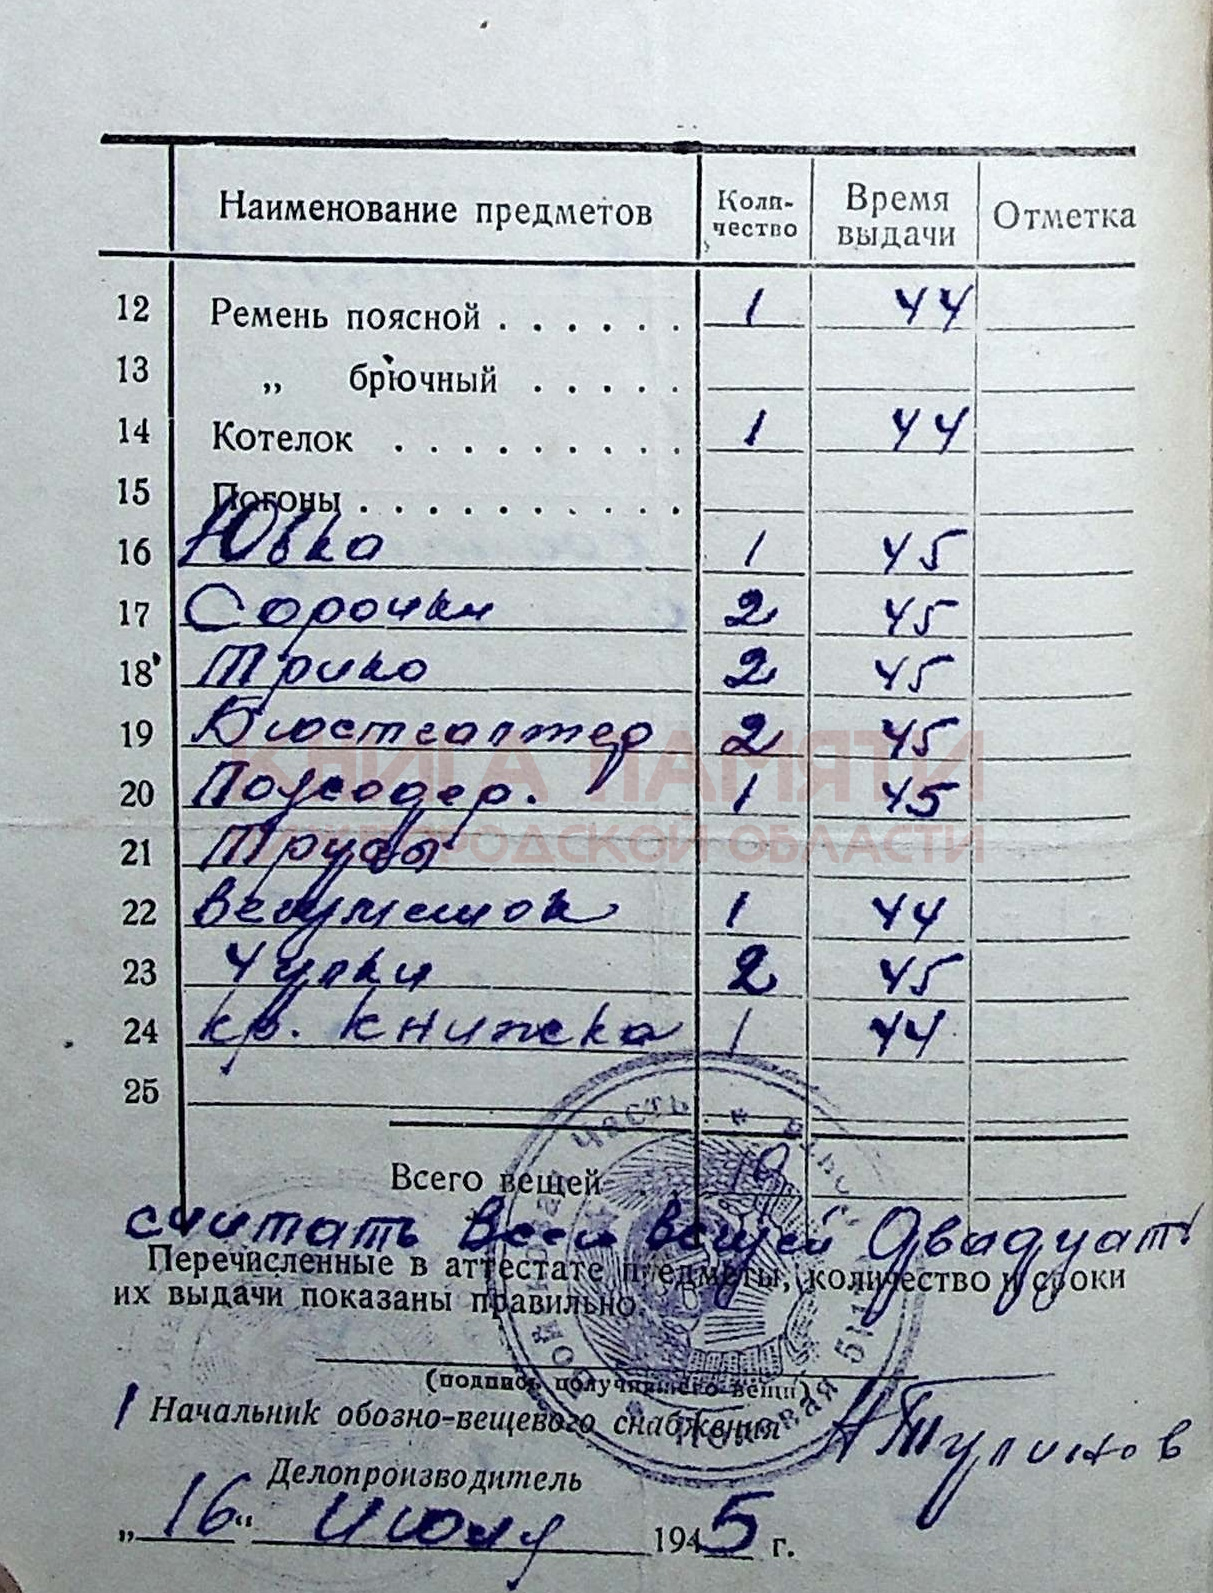 Наименование предметов Коли-чество Время выдачи Отметка
12 Ремень поясной . . . . . . 1 44
13 „ брючный . . . . .
14 Котелок . . . . . . . . . 1 44
15 Погоны . . . . . . . . . . .
16 Юбка 1 45
17 Сорочки 2 45
18 Трико 2 45
19 Бюстгалтер 2 45
КНИГА ПАМЯТИ
20 Поясодер. 1 45
НИЖЕГОРОДСКОЙ ОБЛАСТИ
21 Трусы
22 Вещмешок 1 44
23 Чулки 2 45
24 кр. книжка 1 44
25
Всего вещей
считать всего вещей Двадцать
Перечисленные в аттестате предметы, количество и сроки
их выдачи показаны правильно.
(подпись получившего вещи)
Начальник обозно-вещевого снабжения
Делопроизводитель
„16“ июня 1945 г.
часть
Полевая